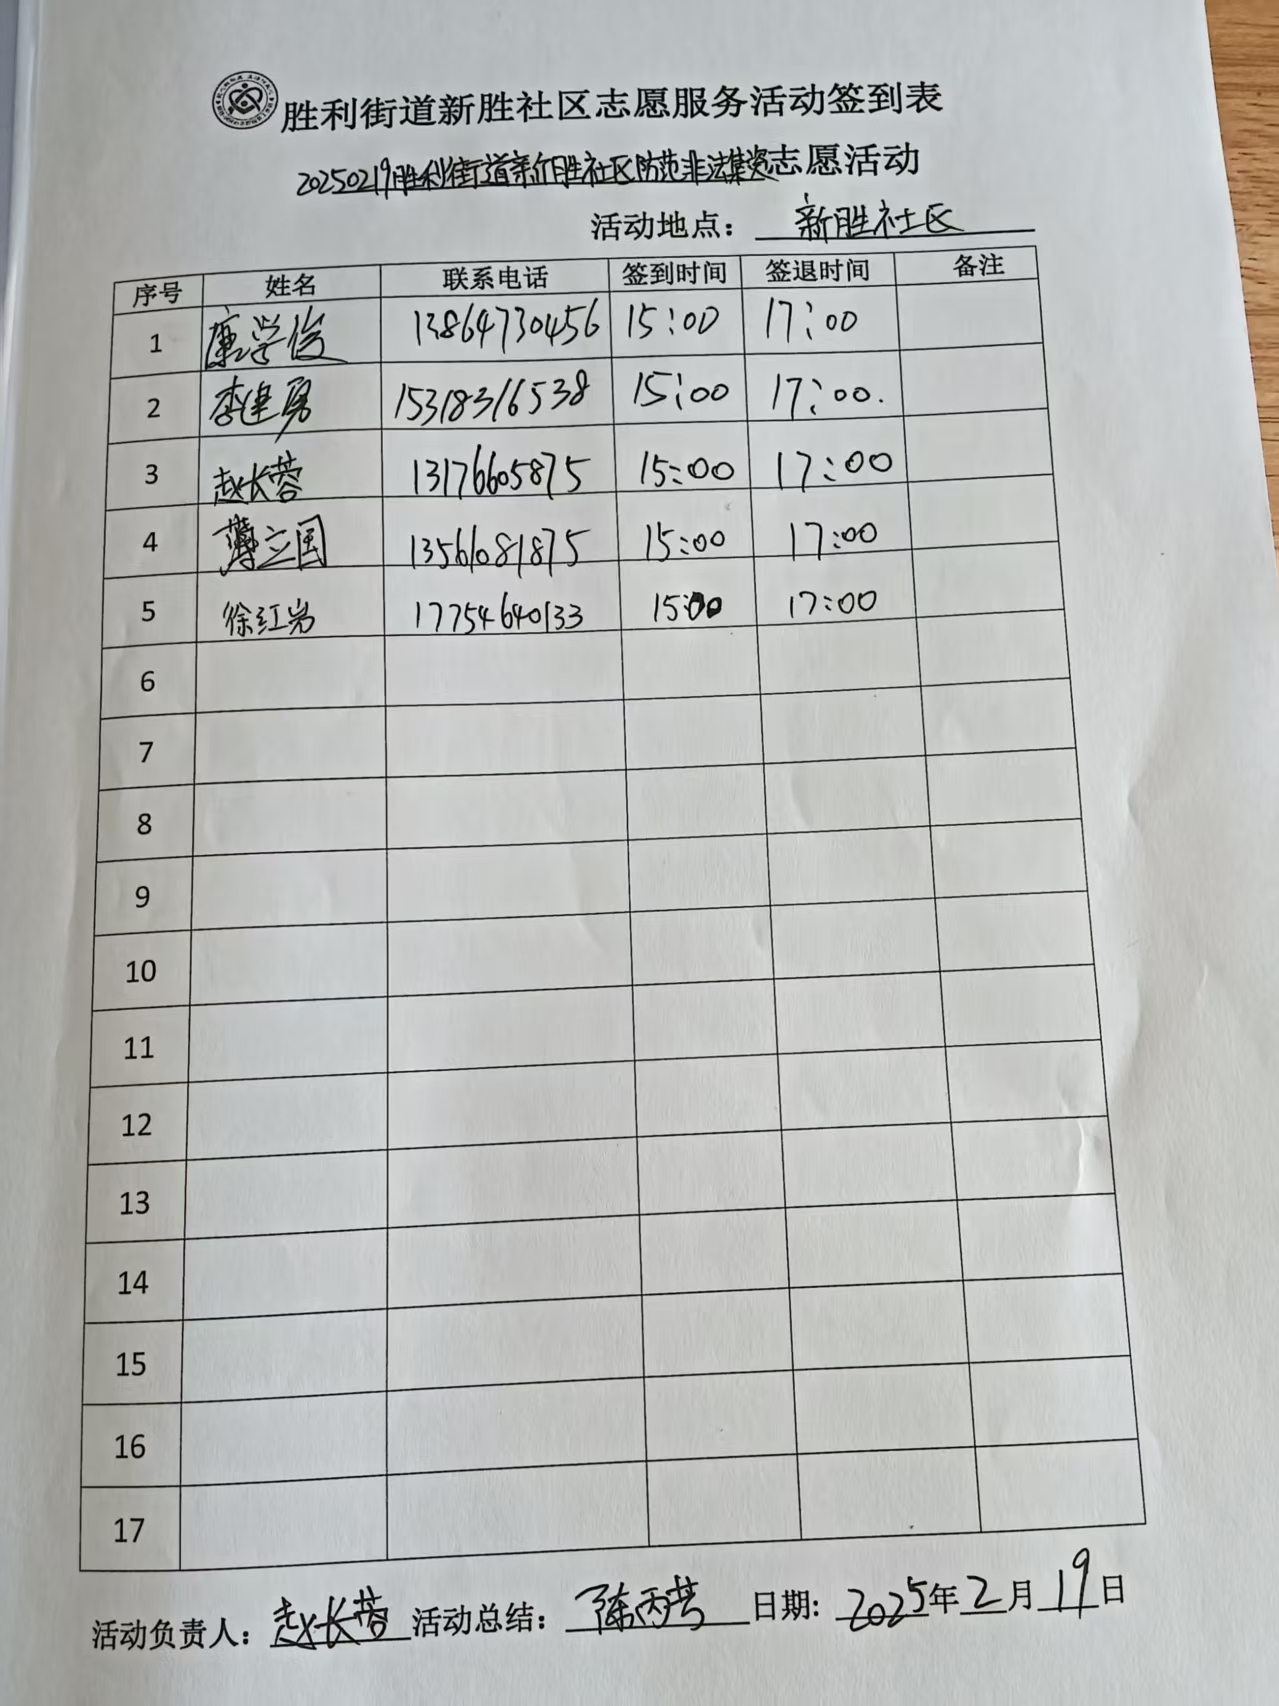 胜利街道新胜社区志愿服务活动签到表
20250219胜利街道新胜社区防范非法集资志愿活动
活动地点：新胜社区
序号 姓名 联系电话 签到时间 签退时间 备注
1 廉学俊 13864730456 15:00 17:00
2 李建勇 15318316538 15:00 17:00.
3 赵长蓉 13176605875 15:00 17:00
4 薄立国 13561081875 15:00 17:00
5 徐红岩 17754640133 15:00 17:00
6
7
8
9
10
11
12
13
14
15
16
17
活动负责人：赵长蓉 活动总结：陈丙 日期：2025年2月19日